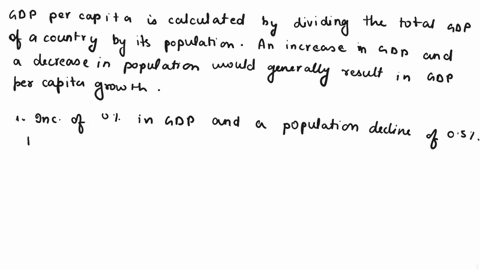 GDP per capita is calculated by dividing the total GDP
of a country by its population. An increase in GDP and
a decrease in population would generally result in GDP
per capita growth.
1. Inc. of 0% in GDP and a population decline of 0.5%.